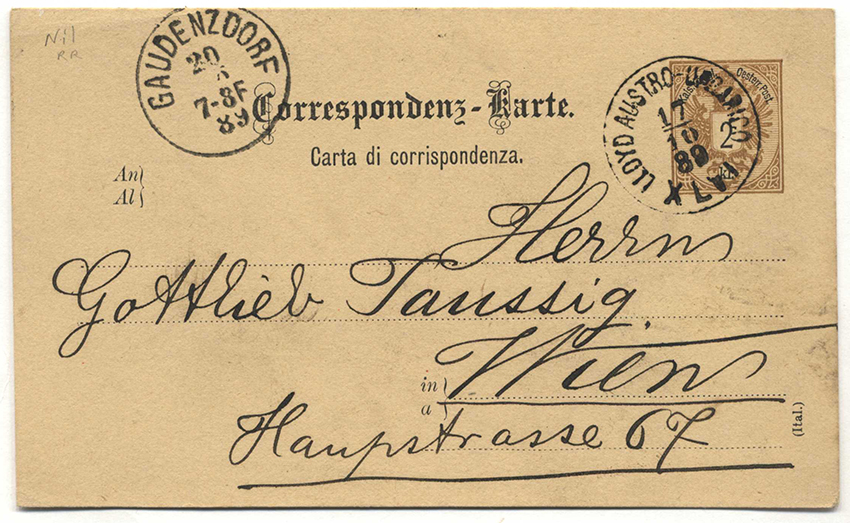 Nil
RR
GAUDENZDORF
20
7-8F
89
Correspondenz-Karte.
Carta di corrispondenza.
LLOYD AUSTRO-UNGARICO
17
10
89
XLVI
Oesterr. Post.
2
kr.
An
Al
Herrn
Gottlieb Taussig.
in
a
Wien
Haupstrasse 67
(Ital.)